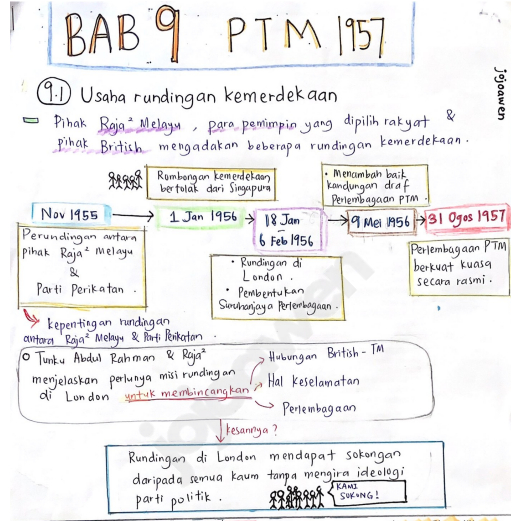 BAB 9 PTM 1957
jojoawen
9.1 Usaha rundingan kemerdekaan
Pihak Raja² Melayu, para pemimpin yang dipilih rakyat &
pihak British mengadakan beberapa rundingan kemerdekaan.
Rombongan kemerdekaan
bertolak dari Singapura
• Menambah baik
kandungan draf
Perlembagaan PTM.
Nov 1955
1 Jan 1956
18 Jan
-
6 Feb 1956
9 Mei 1956
31 Ogos 1957
Perundingan antara
pihak Raja² Melayu
&
Parti Perikatan.
• Rundingan di
London.
• Pembentukan
Suruhanjaya Perlembagaan.
Perlembagaan PTM
berkuat kuasa
secara rasmi.
kepentingan rundingan
antara Raja² Melayu & Parti Perikatan.
Tunku Abdul Rahman & Raja²
menjelaskan perlunya misi rundingan
di London untuk membincangkan
Hubungan British-TM
Hal Keselamatan
Perlembagaan
kesannya?
Rundingan di London mendapat sokongan
daripada semua kaum tanpa mengira ideologi
parti politik.
KAMI
SOKONG!
jojoawen